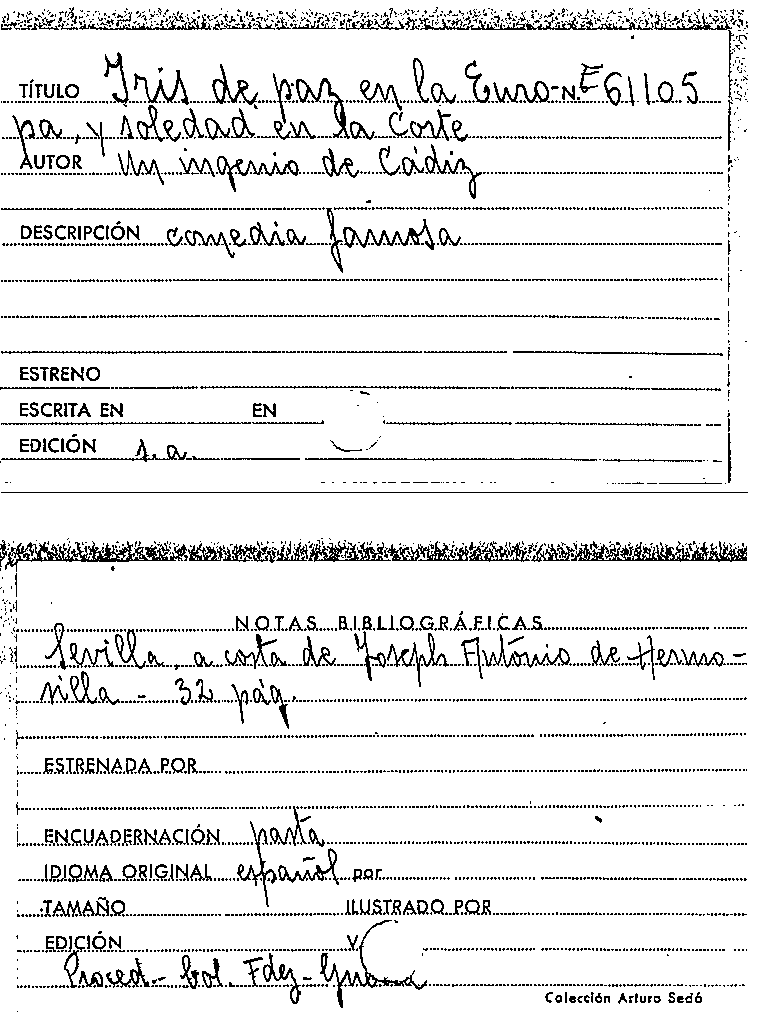 TÍTULO Iris de paz en la Euro- N.E 61105
pa, y soledad en la Corte
AUTOR Un ingenio de Cádiz
DESCRIPCIÓN comedia famosa
ESTRENO
ESCRITA EN EN
EDICIÓN s.a.
NOTAS BIBLIOGRÁFICAS
Sevilla, a costa de Joseph Antonio de Hermo-
silla - 32 pág.
ESTRENADA POR
ENCUADERNACIÓN pasta
IDIOMA ORIGINAL español por
TAMAÑO ILUSTRADO POR
EDICIÓN V
Proced.- Col. Fdez-
Colección Arturo Sedó